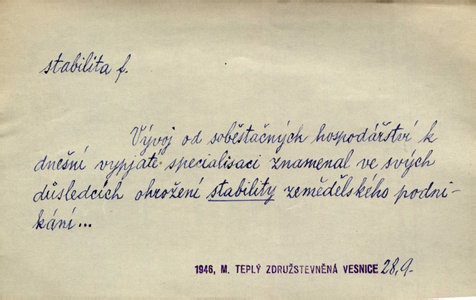 stabilita f.
Vývoj od soběstačných hospodářství k
dnešní vypjaté specialisaci znamenal ve svých
důsledcích ohrožení stability zemědělského podni-
kání...
1946, M. TEPLÝ ZDRUŽSTEVNĚNÁ VESNICE 28,9-